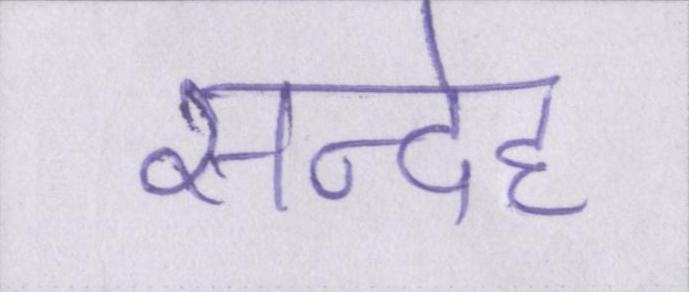 सन्देह